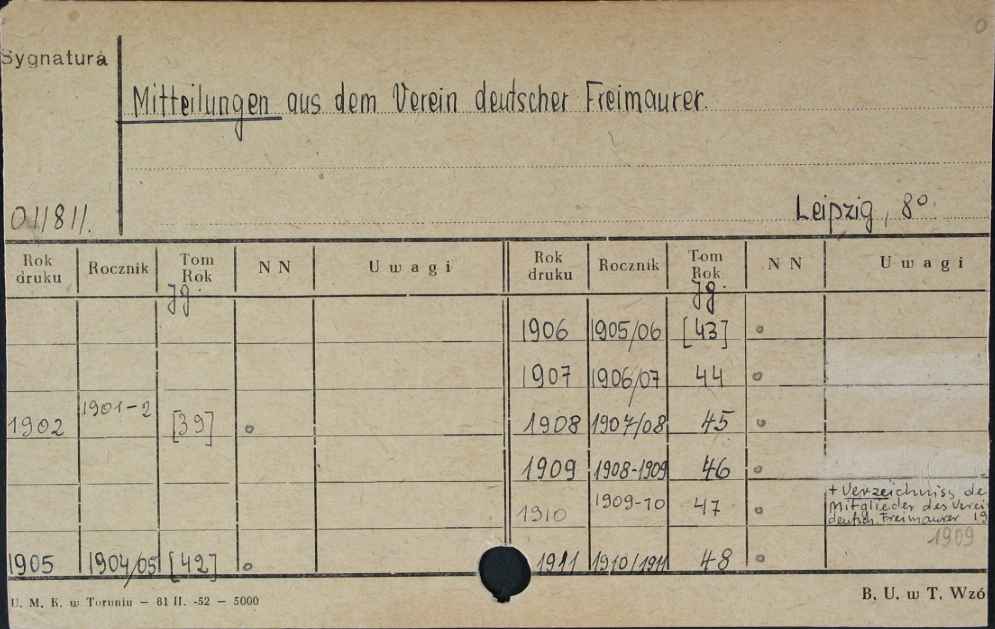 Sygnatura
Mitteilungen aus dem Verein deutscher Freimaurer.
011811.
Leipzig, 8º.
Rok druku Rocznik Tom Rok NN Uwagi Rok druku Rocznik Tom Rok NN Uwagi
Jg. Jg.
1906 1905/06 [43] o
1907 1906/07 44 o
1902 1901-2 [39] o 1908 1907/08 45 o
1909 1908-1909 46 o
1910 1909-10 47 o + Verzeichniss de
Mitglieder des Verei
deutsch. Freimaurer 19
1909
1905 1904/05 [42] o 1911 1910/1911 48 o
U. M. K. w Toruniu — 61 II. -52 — 5000
B. U. w T. Wzó